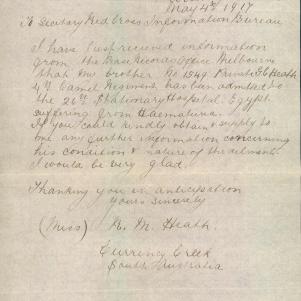 May 4th 1917
To Secretary Red Cross Information Bureau
I have just recieved information
from the Base Records Office Melbourne
that my brother No 1549 Private F. C. Heath
4th Camel Regiment has been admitted to
the 26th Stationary Hospital. Egypt
suffering from Haematuria.
If you could kindly obtain & supply to
me any further information concerning
his condition & nature of the ailment
I would be very glad.
Thanking you in anticipation
yours sincerely
(Miss) R. M. Heath.
Currency Creek
South Australia